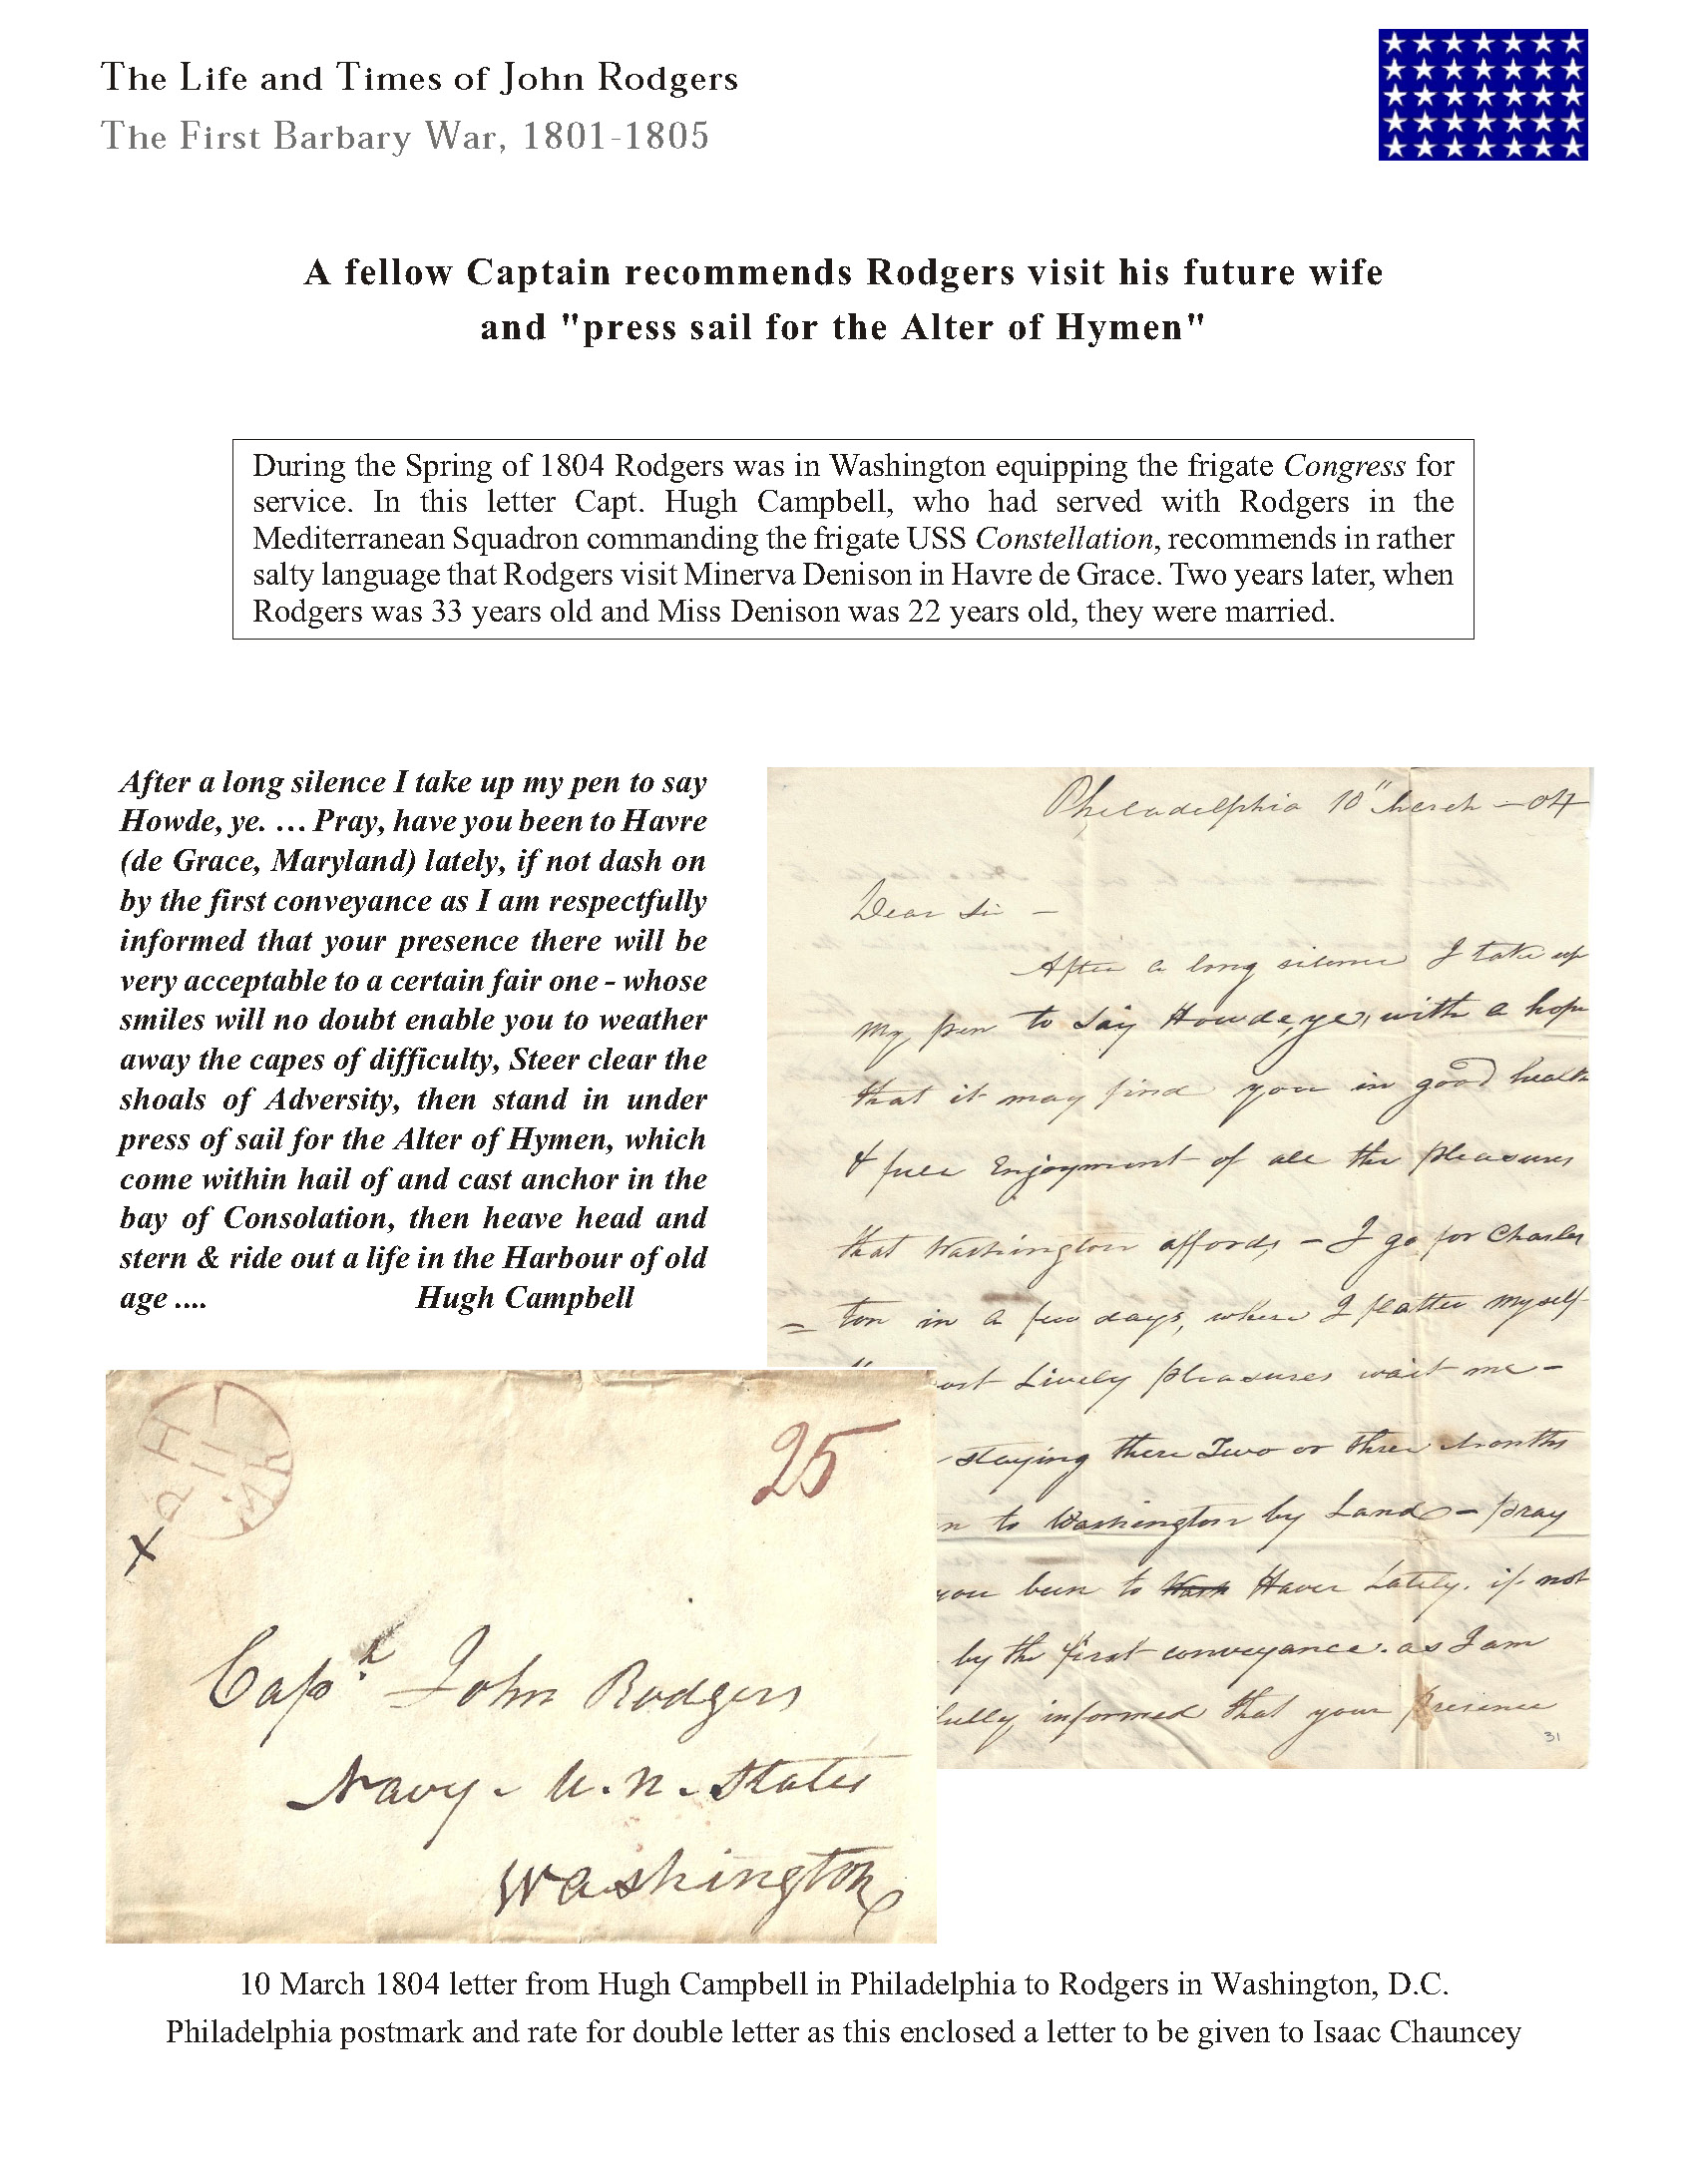 The Life and Times of John Rodgers
The First Barbary War, 1801-1805
A fellow Captain recommends Rodgers visit his future wife
and "press sail for the Alter of Hymen"
During the Spring of 1804 Rodgers was in Washington equipping the frigate Congress for
service. In this letter Capt. Hugh Campbell, who had served with Rodgers in the
Mediterranean Squadron commanding the frigate USS Constellation, recommends in rather
salty language that Rodgers visit Minerva Denison in Havre de Grace. Two years later, when
Rodgers was 33 years old and Miss Denison was 22 years old, they were married.
After a long silence I take up my pen to say
Howde, ye. … Pray, have you been to Havre
(de Grace, Maryland) lately, if not dash on
by the first conveyance as I am respectfully
informed that your presence there will be
very acceptable to a certain fair one - whose
smiles will no doubt enable you to weather
away the capes of difficulty, Steer clear the
shoals of Adversity, then stand in under
press of sail for the Alter of Hymen, which
come within hail of and cast anchor in the
bay of Consolation, then heave head and
stern & ride out a life in the Harbour of old
age ....
Hugh Campbell
Philadelphia 10" March - 04
Dear Sir -
After a long silence I take up
my pen to say Howde, ye, with a hope
that it may find you in good health
& full Enjoyment of all the pleasures
that Washington affords - I go for Charles
= ton in a few days, where I flatter myself
ost Lively pleasures wait me -
staying there Two or three Months
n to Washington by Land - pray
you been to Wash Haver Lately. if not
by the first conveyance. as I am
fully informed that your presence
31
PH
11
MR
25
X
Capt. John Rodgers
Navy - U. N. States
Washington
10 March 1804 letter from Hugh Campbell in Philadelphia to Rodgers in Washington, D.C.
Philadelphia postmark and rate for double letter as this enclosed a letter to be given to Isaac Chauncey